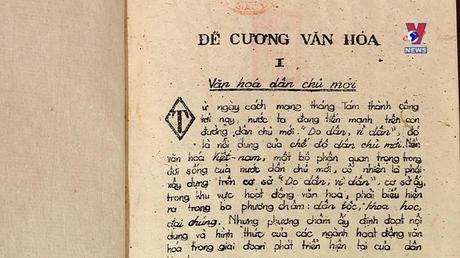 VNEWS
ĐỀ CƯƠNG VĂN HÓA
I
Văn hoá dân chủ mới
Từ ngày cách mạng tháng Tám thành công
tới nay, nước ta đang tiến mạnh trên con
đường dân chủ mới. "Do dân, vì dân", đó
là nội dung của chế độ dân chủ mới. Nền
văn hoá Việt-nam, một bộ phận quan trọng trong
đời sống của nước dân chủ mới, cố nhiên là phải
xây dựng trên cơ sở "Do dân, vì dân", cơ sở ấy,
trong khu vực hoạt động văn hoá, phải biểu hiện
ra trong ba phương châm: dân tộc, khoa học,
đại chúng. Nhưng phương châm ấy định đoạt nội
dung và hình thức của các ngành hoạt động văn
hoá trong giai đoạn phát triển hiện tại của dân